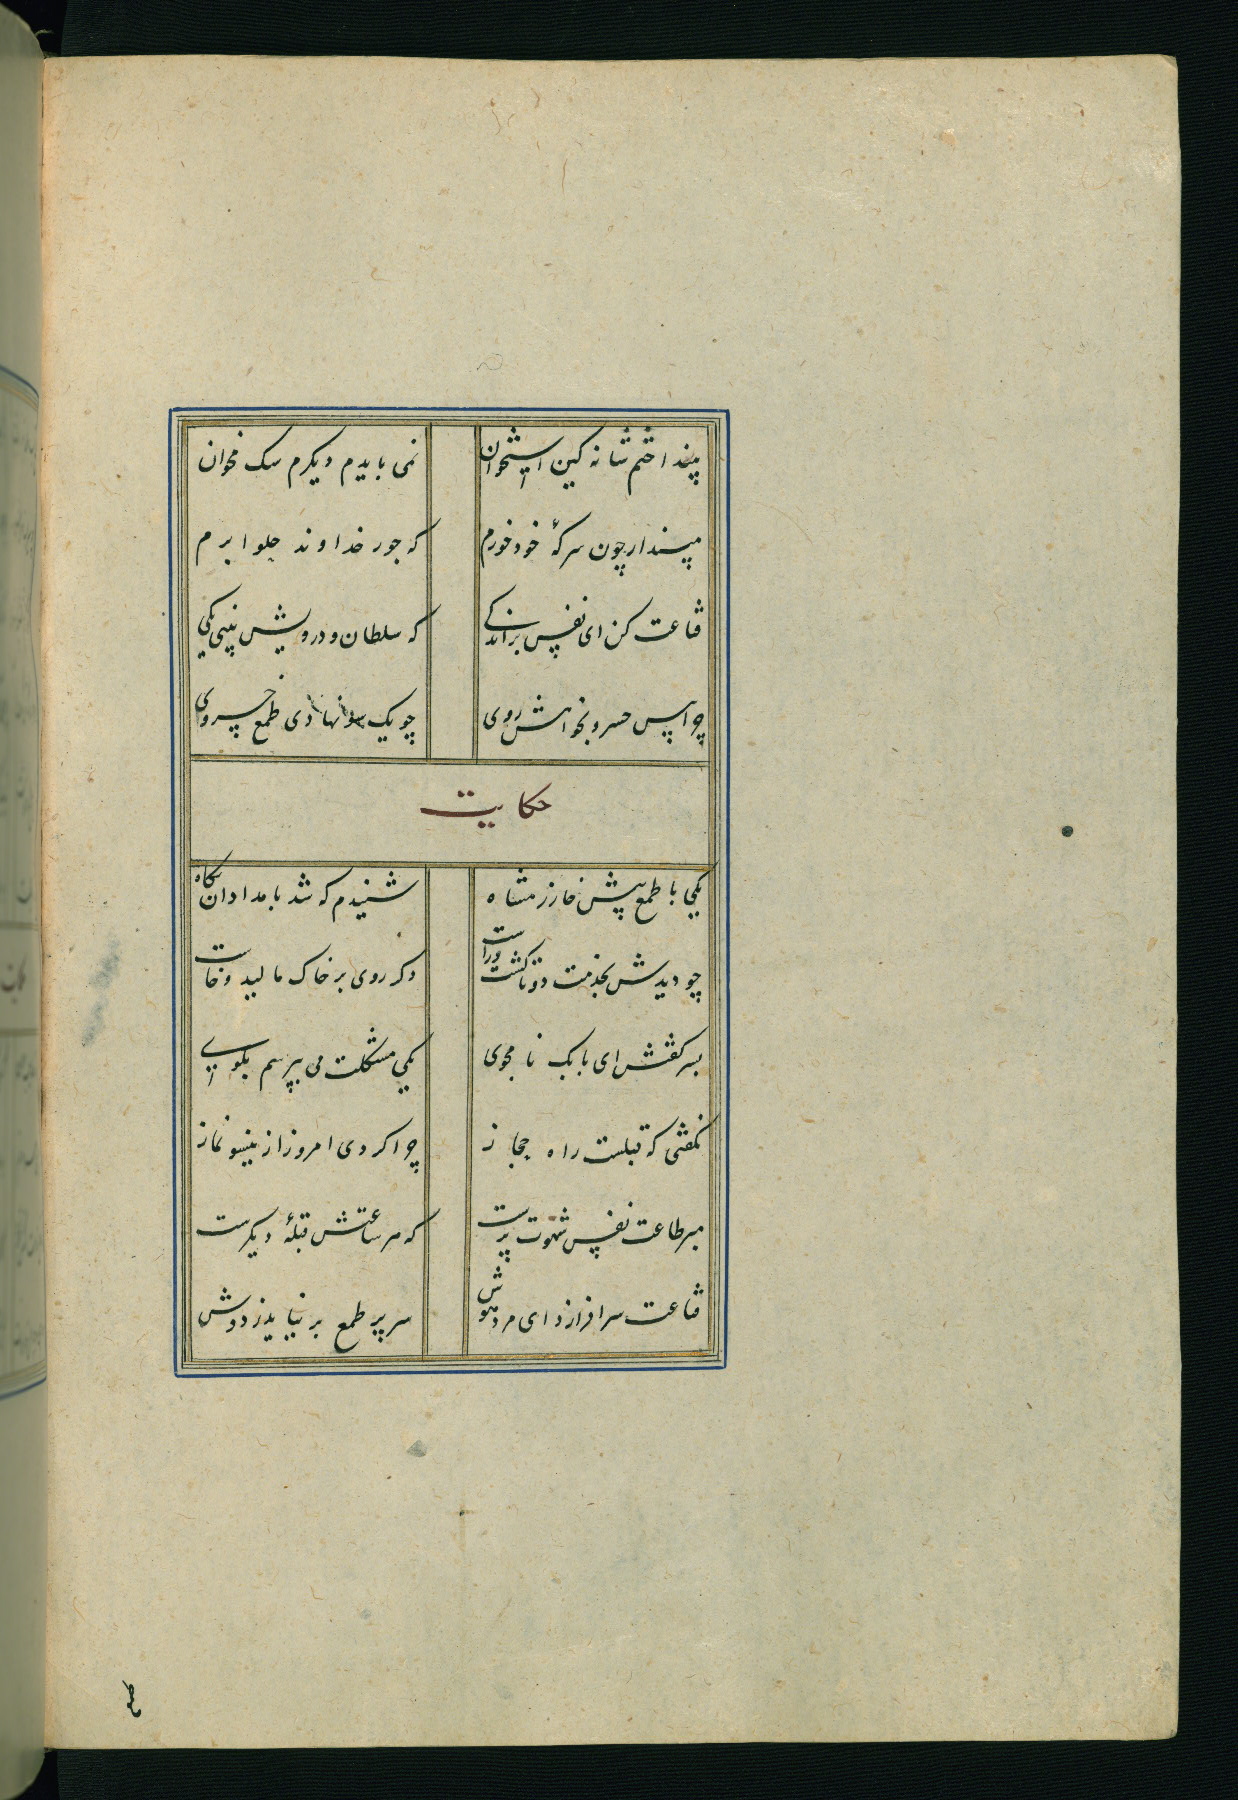 بینداختم شانه کین استخوان نمی بایدم دیکرم سک مخوان
مپندار چون سرکهٔ خود خورم که جور خداوند حلوا برم
قناعت کن ای نفس بر اندکی که سلطان و درویش بینی یکی
چرا پیش خسرو بخواهش روی چو یک سو نهادی طمع خسروی
حکایت
یکی با طمع پیش خارزمشاه شنیدم که شد بامدادان پکاه
چو دیدش بخدمت دوتا کشت و راست دکر روی بر خاک مالید و خاست
پسر کفتش ای بابک نامجوی یکی مشکلت می بپرسم بکوی
نکفتی که قبلست راه حجاز چرا کردی امروز ازینسو نماز
مبر طاعت نفس شهوت پرست که هر ساعتش قبلهٔ دیکرست
قناعت سرافرازد ای مرد هوش سر پر طمع بر نیاید ز دوش